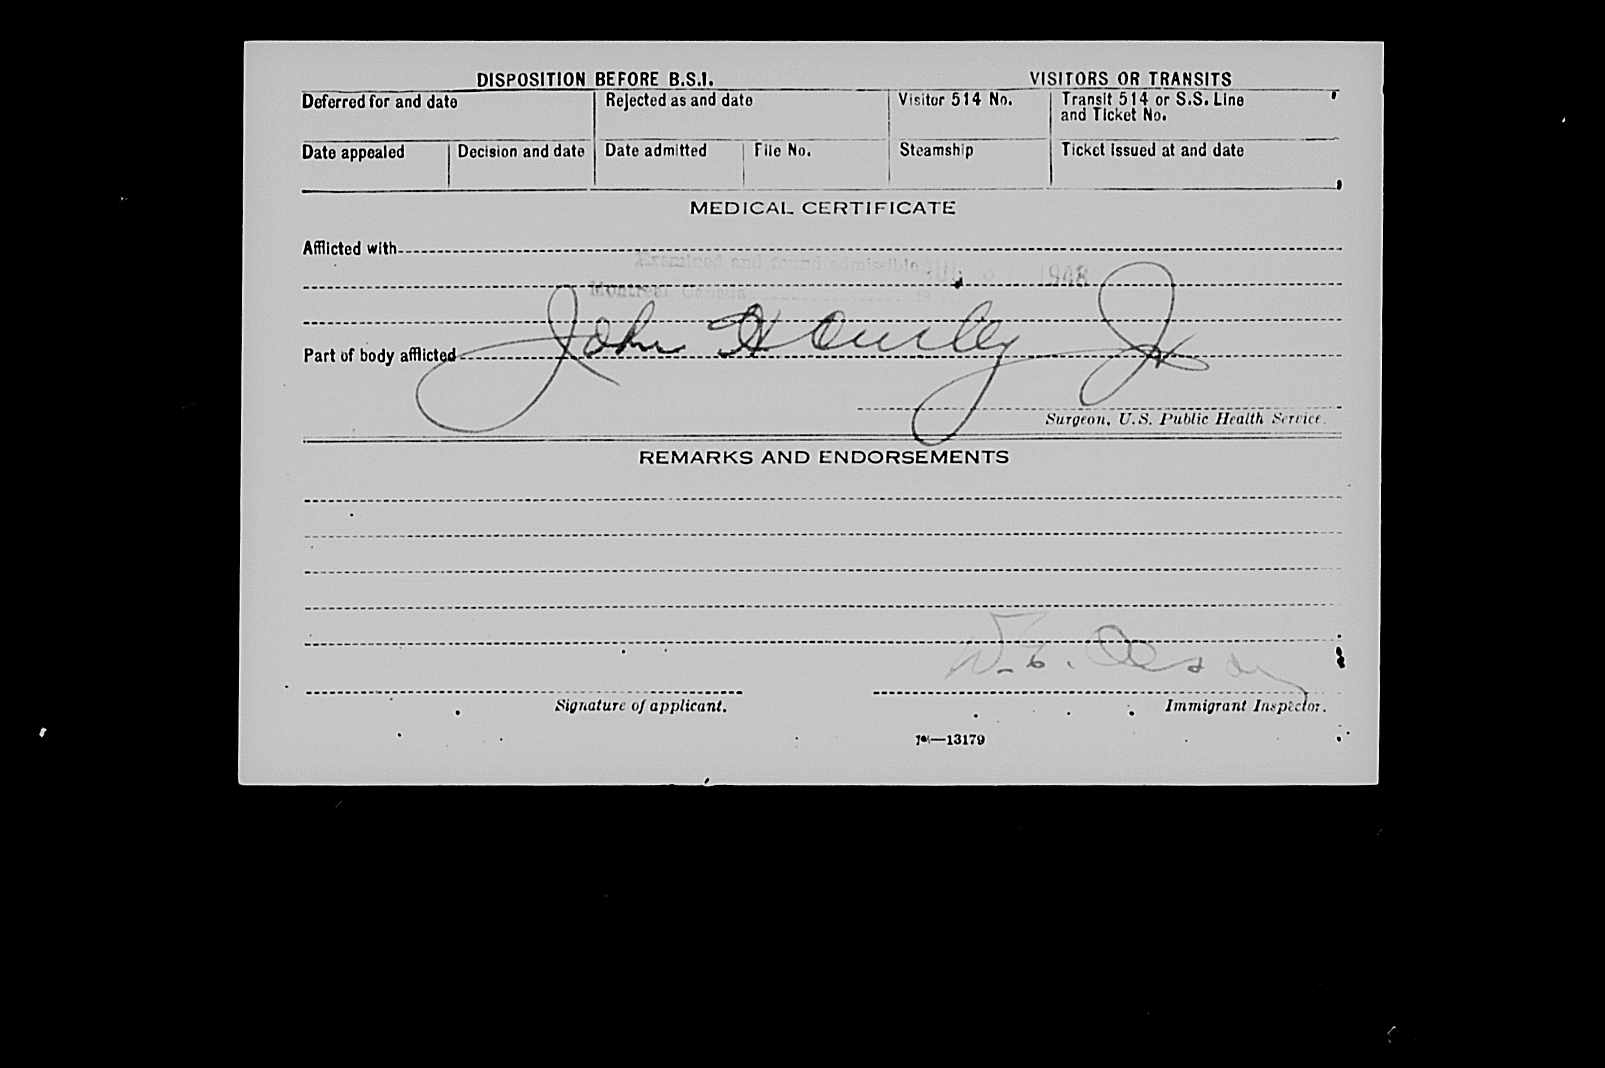 DISPOSITION BEFORE B.S.I. VISITORS OR TRANSITS
Deferred for and date Rejected as and date Visitor 514 No. Transit 514 or S.S. Line
and Ticket No.
Date appealed Decision and date Date admitted File No. Steamship Ticket issued at and date
MEDICAL CERTIFICATE
Afflicted with
Examined and found admissible 1948
Montreal Canada
John H Jr
Part of body afflicted
Surgeon, U.S. Public Health Service.
REMARKS AND ENDORSEMENTS
W. E.
Signature of applicant. Immigrant Inspector.
16—13179